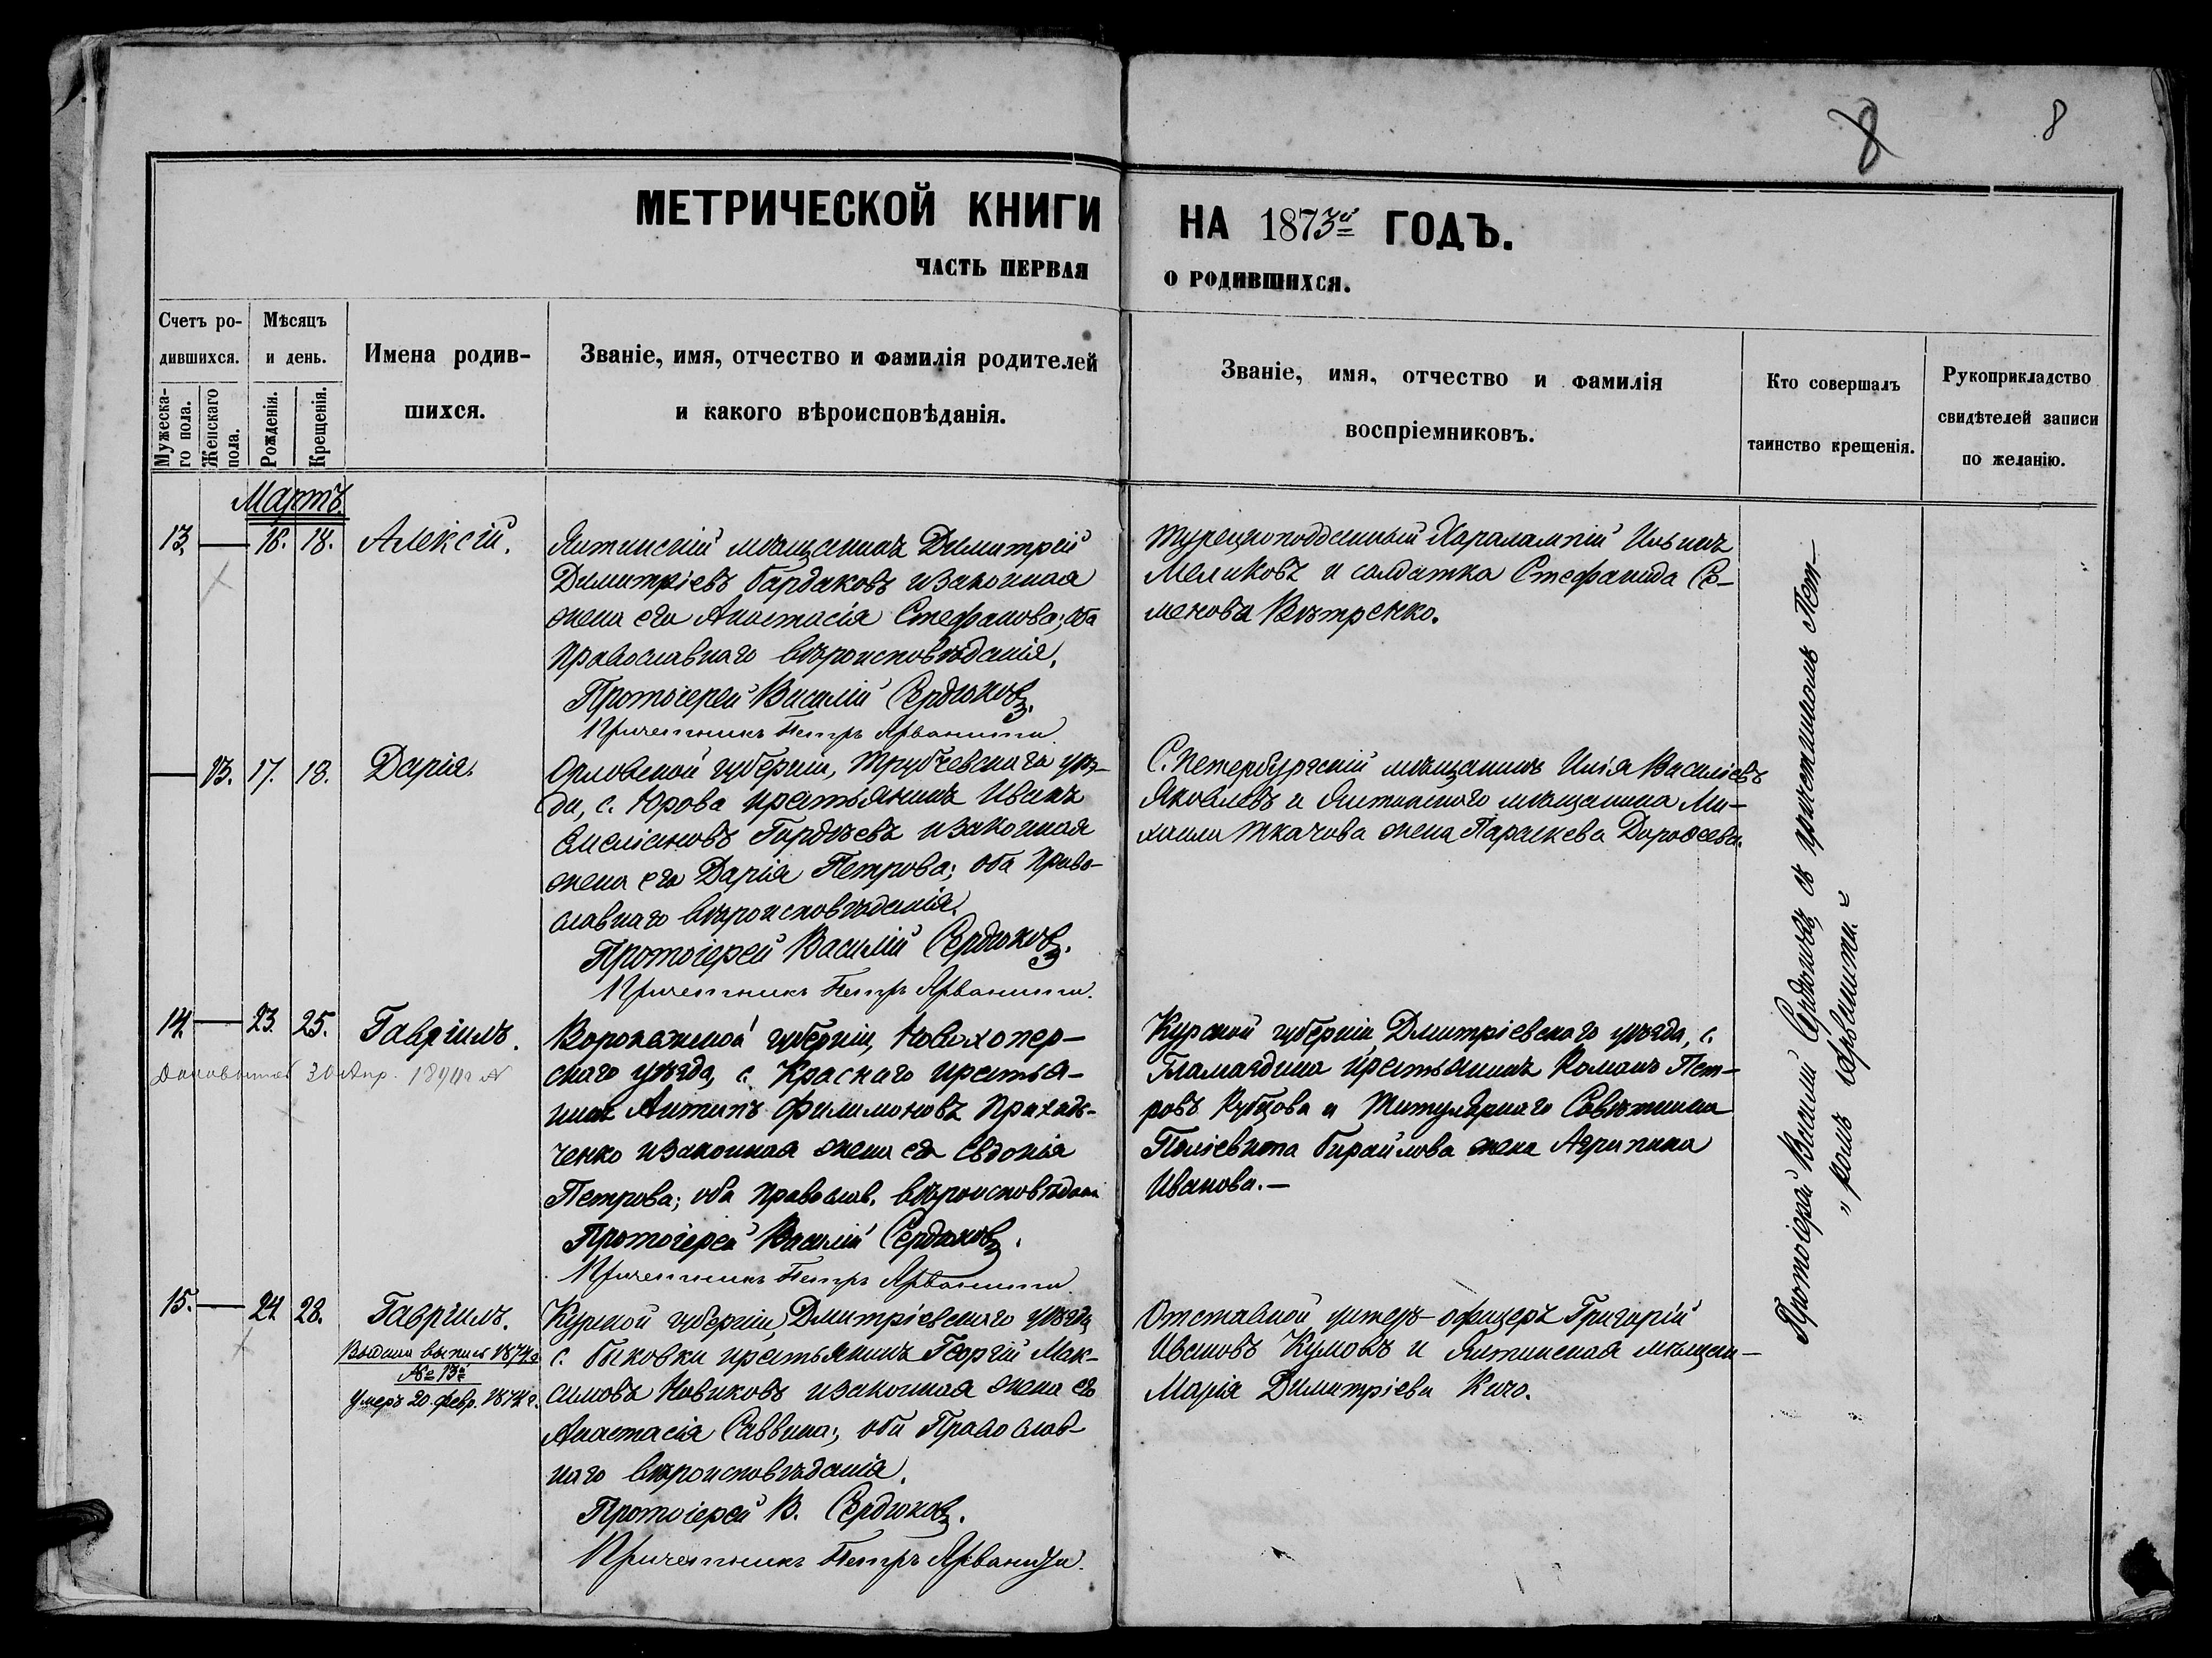 8
8
МЕТРИЧЕСКОЙ КНИГИ НА 1873й ГОДЪ.
ЧАСТЬ ПЕРВАЯ О РОДИВШИХСЯ.
Счетъ ро-
дившихся.
Мужеска-
го пола.
Женскаго
пола.
Мѣсяцъ
и день.
Рожденія.
Крещенія.
Имена родив-
шихся.
Званіе, имя, отчество и фамилія родителей
и какого вѣроисповѣданія.
Званіе, имя, отчество и фамилія
воспріемниковъ.
Кто совершалъ
таинство крещенія.
Рукоприкладство
свидѣтелей записи
по желанію.
Мартъ.
13. — 16. 18. Алексій.
Ялтинскій мѣщанинъ Димитрій
Димитріевъ Бардаковъ и законная
жена его Анастасія Стефанова; оба
православнаго вѣроисповѣданія.
Протоіерей Василій Сердюковъ.
Причетникъ Петръ Арванити.
Турецкоподданный Харалампій Ильинъ
Меликовъ и солдатка Стефанида Се-
менова Вѣтренко.
— 13. 17. 18. Дарія.
Орловской губерніи, Трубчевскаго уѣз-
да, с. Юрова крестьянинъ Иванъ
Емеліановъ Гордѣевъ и законная
жена его Дарія Петрова; оба право-
славнаго вѣроисповѣданія.
Протоіерей Василій Сердюковъ.
Причетникъ Петръ Арванити.
С. Петербургскій мѣщанинъ Илія Василіевъ
Яковлевъ и Ялтинского мѣщанина Ми-
хаила Ткачова жена Параскева Дороѳеева.
14. — 23. 25. Гавріилъ.
30 Апр.
Воронежской губерніи, Новохопер-
скаго уѣзда, с. Краснаго крестья-
нинъ Антипъ Филимоновъ Приходь-
ченко и законная жена его Евдокія
Петрова; оба православ. вѣроисповѣдан.
Протоіерей Василій Сердюковъ.
Причетникъ Петръ Арванити.
Курской губерніи, Дмитріевского уѣзда, с.
крестьянинъ Романъ Пет-
ровъ и Титулярнаго Совѣтника
жена Агрипина
Иванова.—
15. — 24. 28. Гавріилъ.
Выдана выпись 1874 г.
№ 13й
Умеръ 20 февр. 1874 г.
Курской губерніи, Дмитріевскаго уѣзда
с. Быковки крестьянинъ Георгій Мак-
симовъ Новиковъ и законная жена его
Анастасія Саввина; оба Православ-
наго вѣроисповѣданія.
Протоіерей В. Сердюковъ.
Причетникъ Петръ Арванити.
Отставной унтеръ-офицеръ Григорій
Ивановъ и Ялтинская мѣщан-
Марія Димитріева
Протоіерей Василій Сердюковъ, съ причетникомъ Пет-
„ромъ Арванити.“